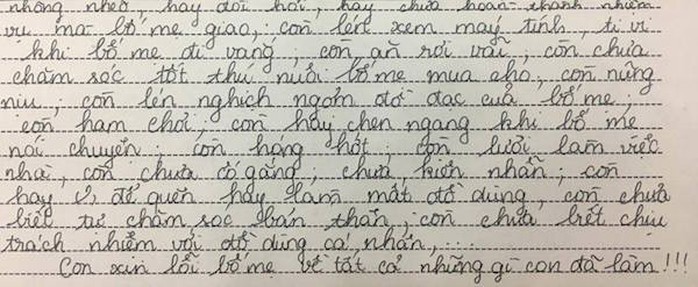 nhõng nhẽo, hay đòi hỏi, hay chưa hoàn thành nhiệm
vụ mà bố mẹ giao, con lén xem máy tính, ti vi
khi bố mẹ đi vắng; con ăn rơi vãi, con chưa
chăm sóc tốt thú nuôi bố mẹ mua cho, con nũng
nịu; con lén nghịch ngợm đồ đạc của bố mẹ;
con ham chơi; con hay chen ngang khi bố mẹ
nói chuyện; con hạng hót; con lười làm việc
nhà, con chưa cố gắng; chưa kiên nhẫn; con
hay để quên hay làm mất đồ dùng, con chưa
biết tự chăm sóc bản thân; con chưa biết chịu
trách nhiệm với đồ dùng cá nhân,...
Con xin lỗi bố mẹ về tất cả những gì con đã làm!!!